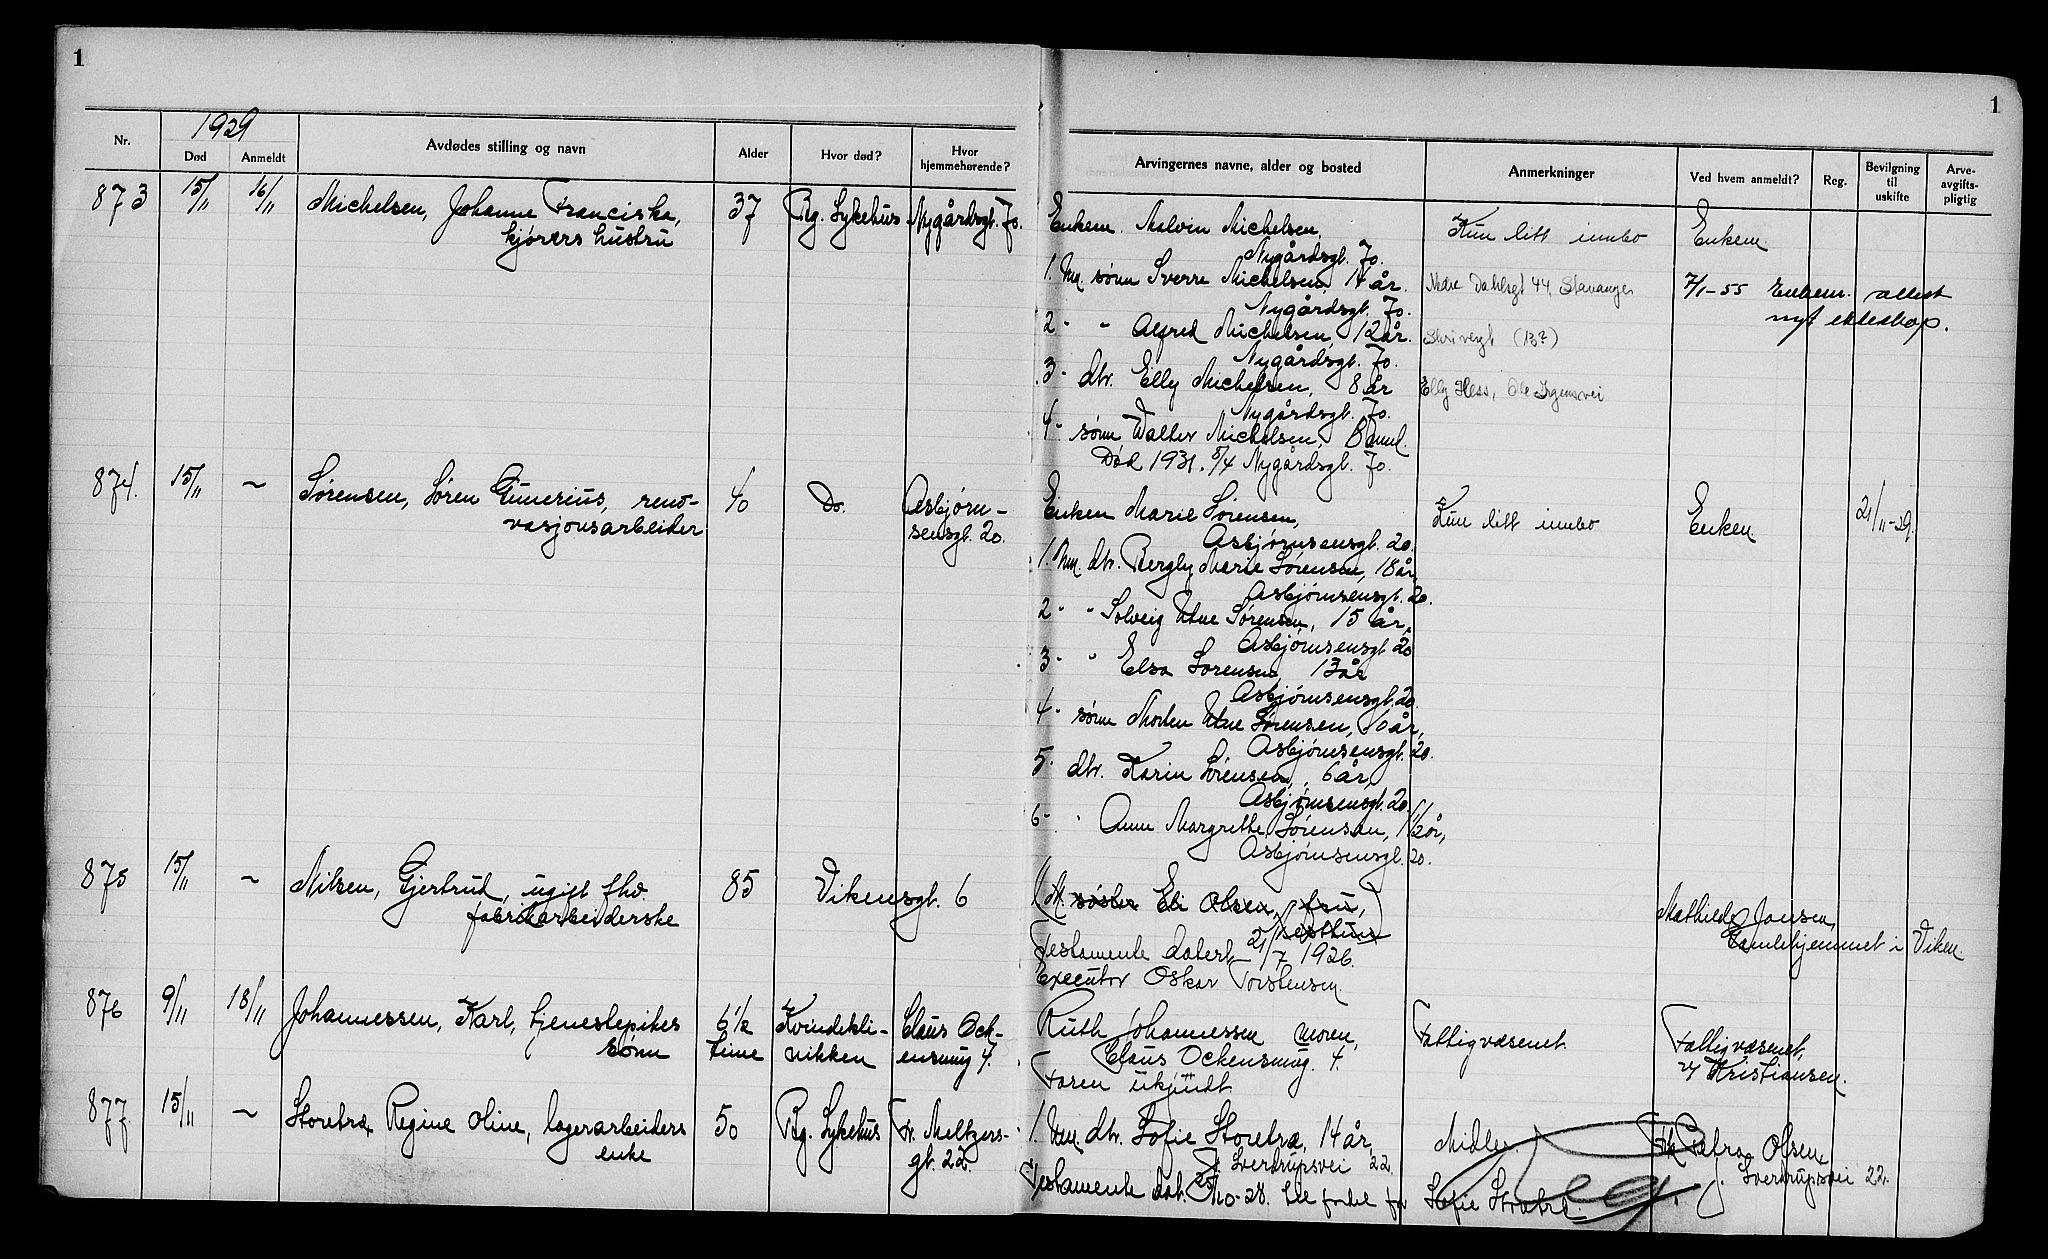 1
1
Nr.
1929
Død
Anmeldt
Avdødes stilling og navn
Alder
Hvor død?
Hvor
hjemmehørende?
Arvingernes navne, alder og bosted
Anmerkninger
Ved hvem anmeldt?
Reg.
Bevilgning
til
uskifte
Arve-
avgifts-
pligtig
873 15/11 16/11 Michelsen, Johanne Franciska, 37 Bg. Sykehus Nygårdsgt. 70.
kjørers hustru
Enkem. Malvin Michelsen, Kun litt innbo Enkem.
Nygårdsgt. 70.
1. Um. sønn Sverre Michelsen, 14 år. Nedre Dahlsgt 44, Stavanger 7/1-55 Enkem. attest
Nygårdsgt. 70. nyt ekteskap.
2 - " Alfred Michelsen, 12 år. (13?)
Nygårdsgt. 70.
3 - dtr. Elly Michelsen, 8 år Elly Hess, Ole Irgensvei
Nygårdsgt. 70.
4 - sønn Walter Michelsen, 8 mnd.
Død 1931. 8/4 Nygårdsgt. 70.
874. 15/11 ~ Sørensen, Søren Gunerius, reno- 40 Do. Asbjørn-
vasjonsarbeider sensgt. 20.
Enken Marie Sørensen, Kun litt innbo Enken 21/11-29.
Asbjørnsensgt. 20.
1. Um. dtr. Bergly Marie Sørensen, 18 år,
Asbjørnsensgt. 20.
2 - " Solveig Utne Sørensen, 15 år,
Asbjørnsensgt. 20
3 - " Elsa Sørensen, 13 år
Asbjørnsensgt. 20.
4 - sønn Morten Utne Sørensen, 10 år,
Asbjørnsensgt. 20.
5 - dtr. Karin Sørensen, 6 år,
Asbjørnsensgt. 20.
6 - " Anne Margrethe Sørensen, 1 1/2 år,
Asbjørnsensgt. 20.
875 15/11 ~ Nilsen, Gjertrud, ugift fhv. 85 Vikensgt. 6
fabrikarbeiderske
1. M. søster Eli Olsen, fru, Mathilde Jansen,
Nesttun Gamlehjemmet i Viken.
Testamente datert 21/7 1926.
Executor Oskar Torstensen.
876 9/11 18/11 Johannessen, Karl, tjenestepikes 6 1/2 Kvindekli- Claus Ock-
sønn time nikken ensmug 4.
Ruth Johannessen moren, Fattigvæsenet. Fattigvæsenet,
Claus Ockensmug. 4. v/ Kristiansen.
Faren ukjendt
877. 15/11 ~ Storetræ Regine Oline, lagerarbeiders 50 Bg. Sykehus Fr. Meltzers-
enke gt. 22.
1. Um. dtr. Sofie Storetræ, 14 år, Midler. Frk Petra Olsen,
J. Sverdrupsvei 22. J. Sverdrupsvei 22.
Testamente dat. /10-28. til fordel for Sofie Storetræ.